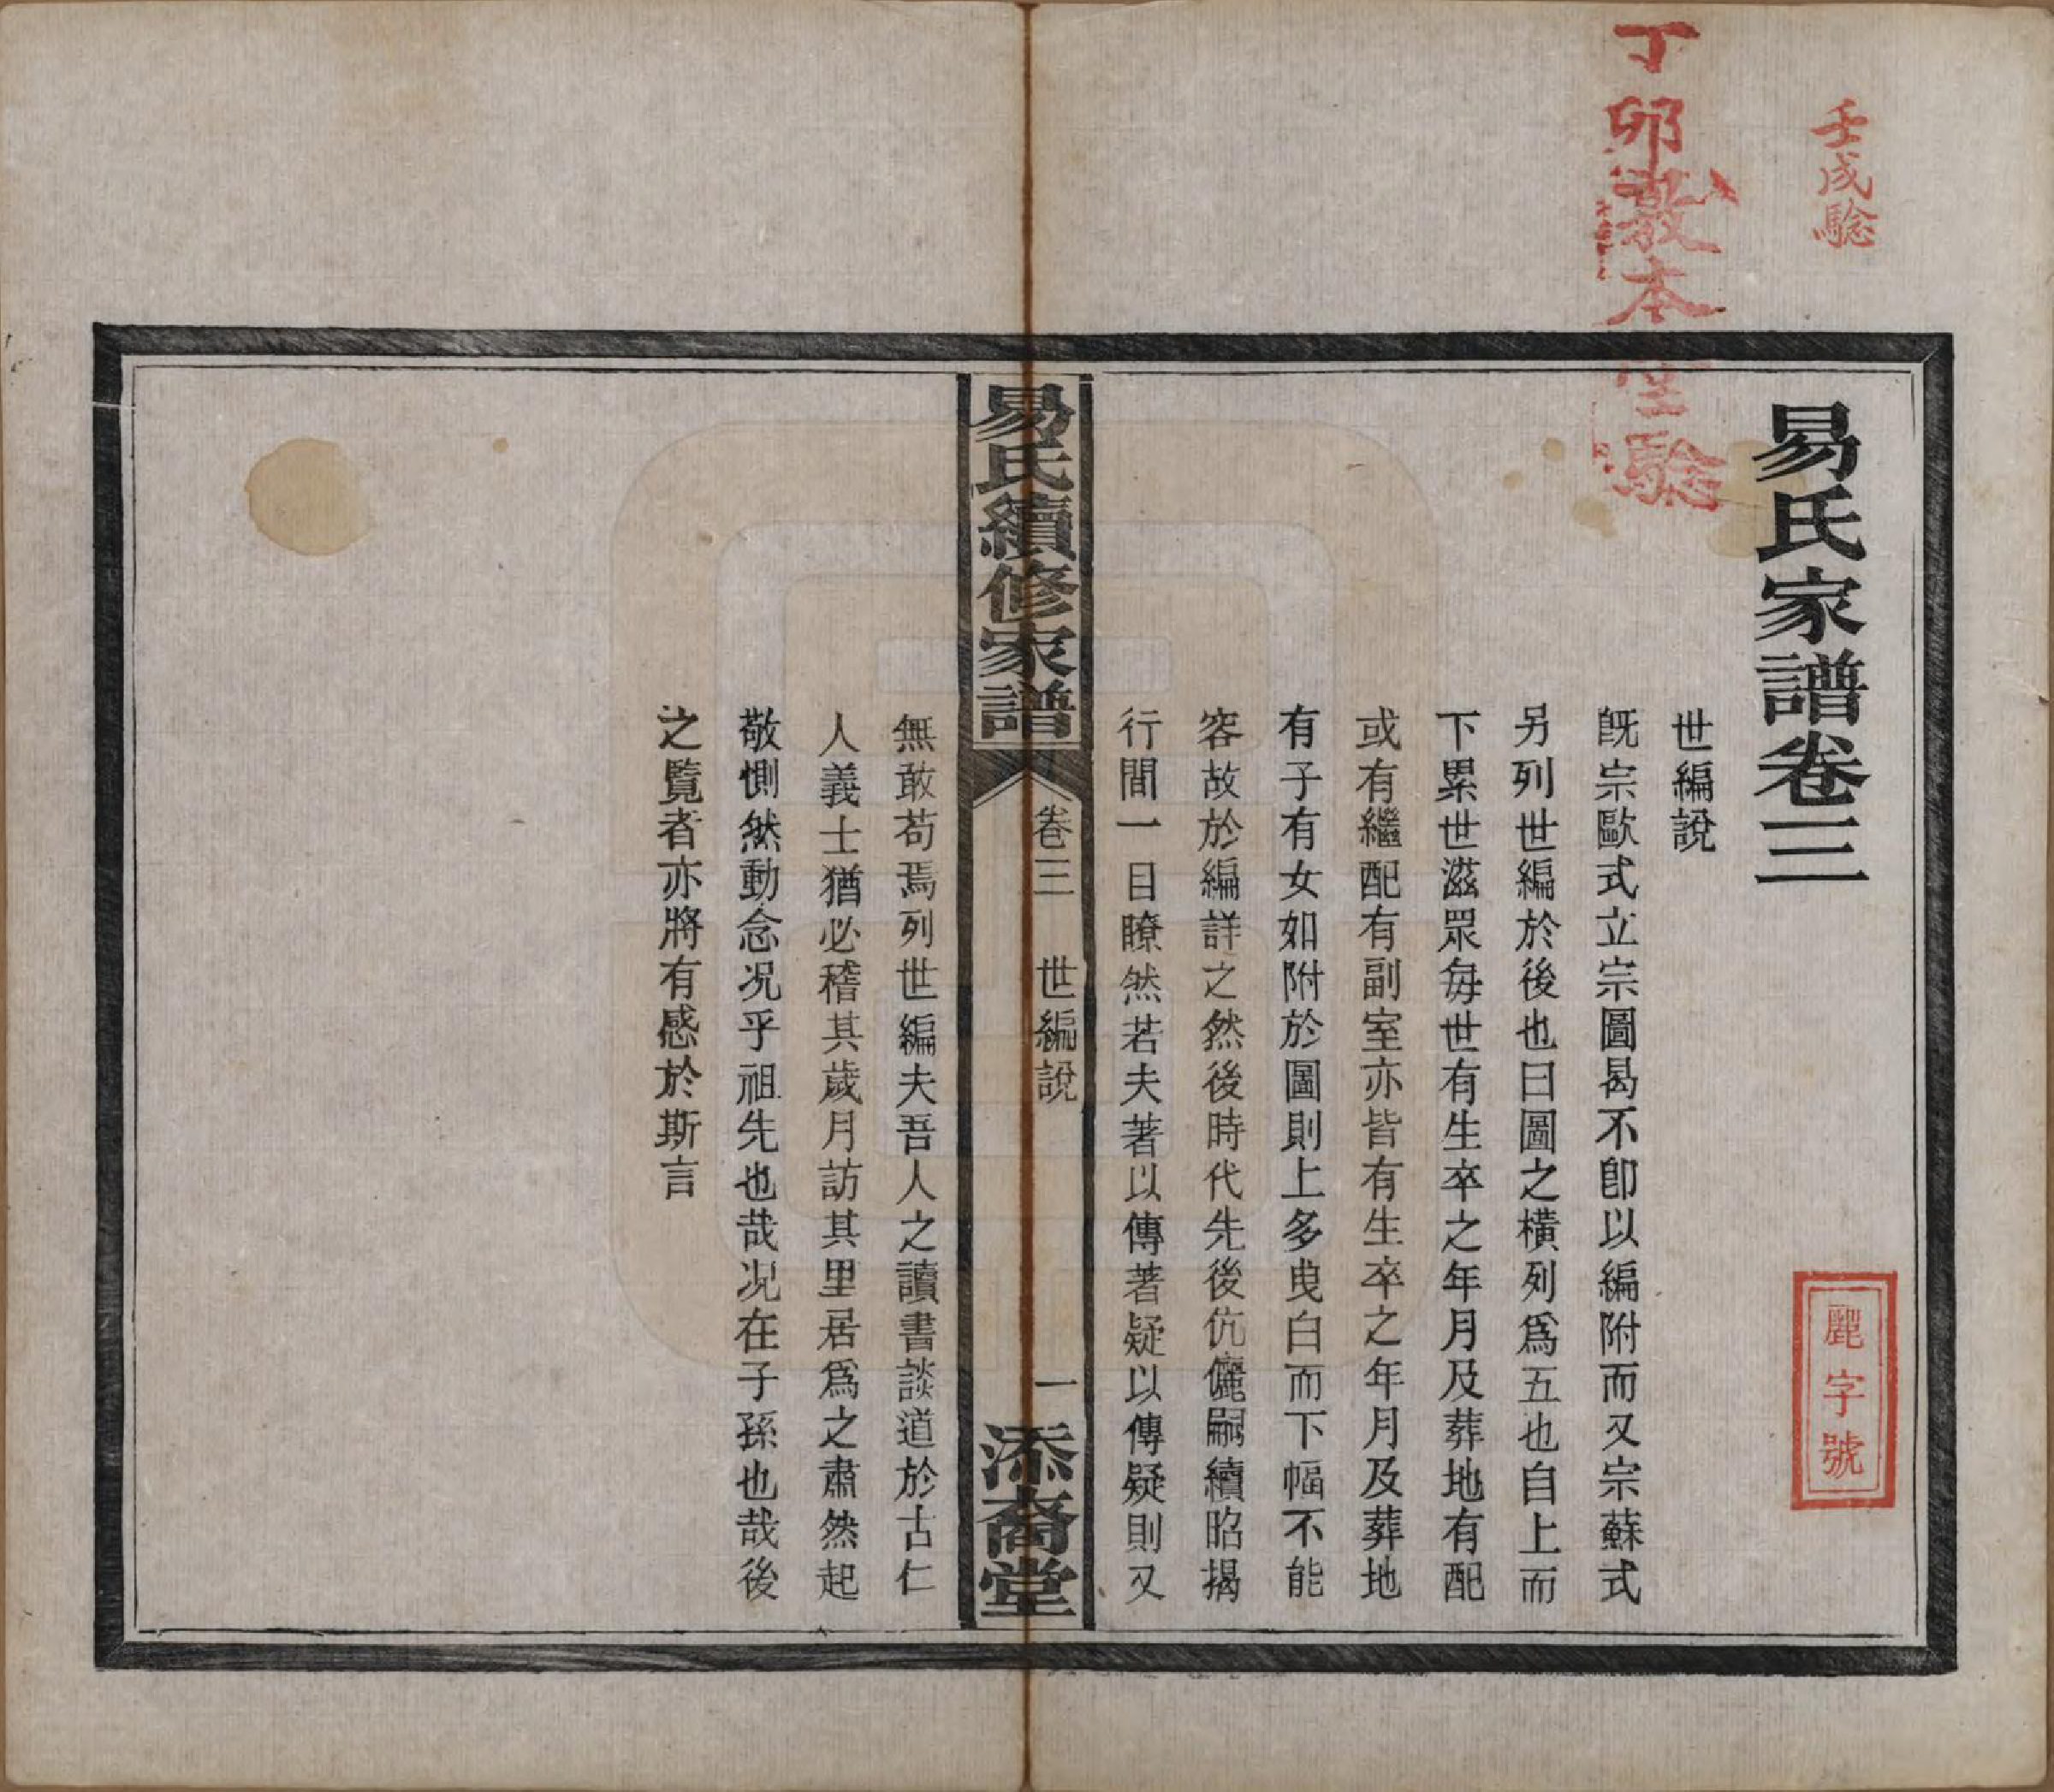 壬戌騐
丁卯敦本堂騐
易氏家譜卷三
麗字號
世編說
旣宗歐式立宗圖曷不卽以編附而又宗蘇式
另列世編於後也曰圖之橫列爲五也自上而
下累世滋眾每世有生卒之年月及葬地有配
或有繼配有副室亦皆有生卒之年月及葬地
有子有女如附於圖則上多曳白而下幅不能
容故於編詳之然後時代先後伉儷嗣續昭揭
行間一目瞭然若夫著以傳著疑以傳疑則又
易氏續修家譜
卷三 世編說 一
添裔堂
無敢苟焉列世編夫吾人之讀書談道於古仁
人義士猶必稽其歲月訪其里居爲之肅然起
敬惻然動念况乎祖先也哉况在子孫也哉後
之覽者亦將有感於斯言